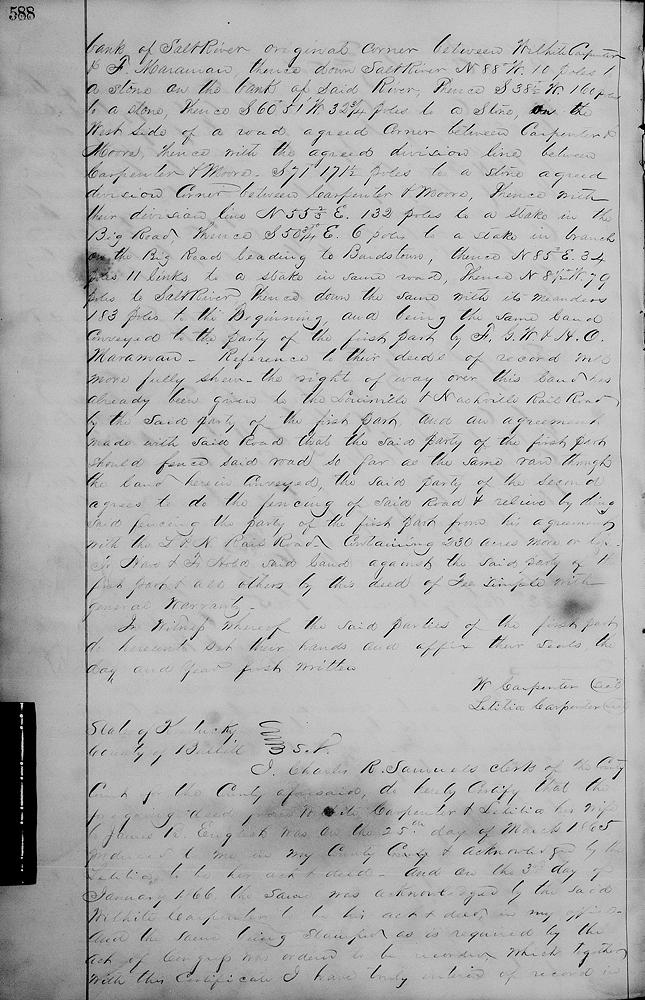 588
bank of Salt River original corner between Wilhite Carpenter
& F. Maraman, thence down Salt River N 88° W. 10 poles to
a stone on the bank of said River, thence S 38½ W 160 poles
to a stone, thence S 60° 51' W 32¾ poles to a Stone, on the
West side of a road, agreed Corner between Carpenter &
Moore, thence with the agreed division line between
Carpenter & Moore. S 71° 171½ poles to a stone agreed
division Corner between Carpenter & Moore, thence with
their division line N 55 E. 132 poles to a stake in the
Big Road, thence S 50¾ E. 6 poles to a stake in branch
on the Big Road leading to Bardstown, thence N 85 E. 34
poles 11 links to a stake in same road, thence N 8½ W. 79
poles to Salt River, thence down the same with its meanders
183 poles to the Beginning, and being the same land
conveyed to the party of the first part by F, G. W. & H. C.
Maraman - Reference to their deeds of record will
more fully shew - the right of way over this land has
already been given to the Louisville & Nashville Rail Road
by the said party of the first part, and an agreement
made with said Road that the said party of the first part
should fence said road so far as the same ran through
the land herein conveyed, the said party of the second
agrees to do the fencing of said Road & relieve by doing
said fencing the party of the first part from his agreement
with the L & N. Rail Road. Containing 230 acres more or less.
To Have & To Hold said land against the said party of the
first part & all others by this deed of Fee Simple with
general Warranty.
In Witness whereof the said parties of the first part
do hereunto set their hands and affix their seals the
day and year first written
W Carpenter (seal)
Letitia Carpenter (seal)
State of Kentucky
County of Bullitt S.S.
I, Charles R. Samuels clerk of the County
Court for the County aforesaid, do hereby certify that the
foregoing deed from Wilhite Carpenter & Letitia his wife
to James B. English was on the 25th day of March 1865
produced to me in my County & acknowledged by the
Letitia to be her act & deed - and on the 3rd day of
January 1866 the same was acknowledged by the said
Wilhite Carpenter to be his act & deed, in my office -
And the same being stamped as is required by the
act of Congress was ordered to be recorded, which together
with this Certificate I have truly entered of record in